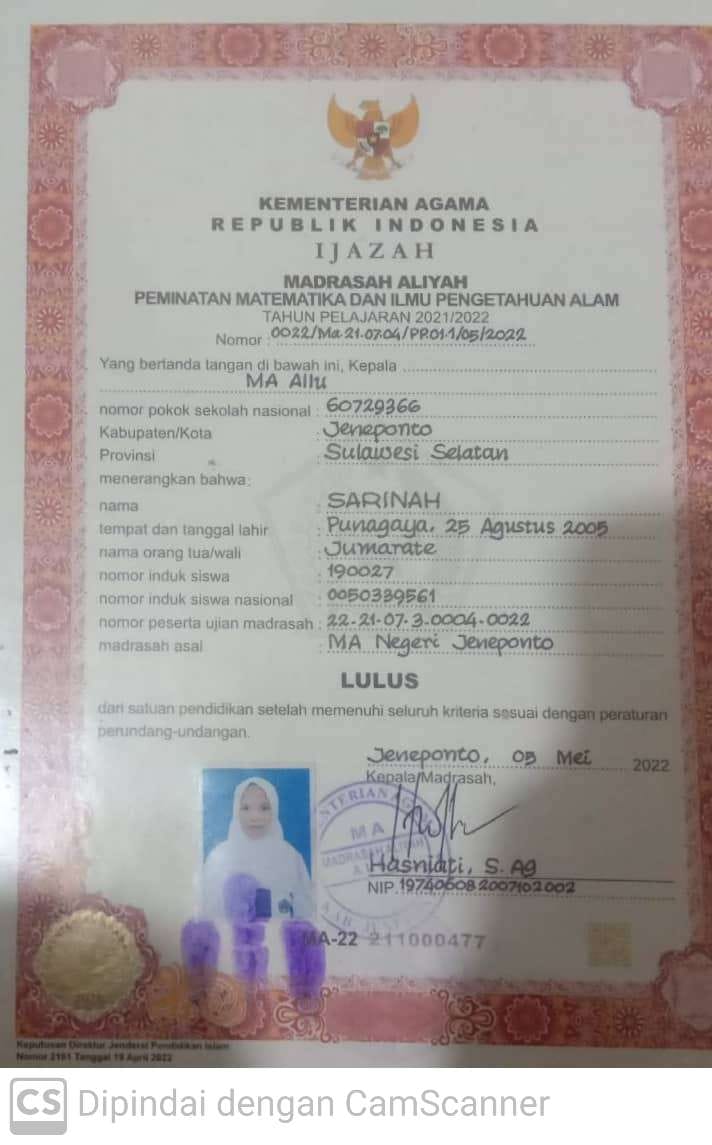 KEMENTERIAN AGAMA
REPUBLIK INDONESIA
IJAZAH
MADRASAH ALIYAH
PEMINATAN MATEMATIKA DAN ILMU PENGETAHUAN ALAM
TAHUN PELAJARAN 2021/2022
Nomor : 0022/Ma.21.07.04/PP.01.1/05/2022
Yang bertanda tangan di bawah ini, Kepala
MA Allu
nomor pokok sekolah nasional : 60729366
Kabupaten/Kota : Jeneponto
Provinsi : Sulawesi Selatan
menerangkan bahwa:
nama : SARINAH
tempat dan tanggal lahir : Punagaya, 25 Agustus 2005
nama orang tua/wali : Jumarate
nomor induk siswa : 190027
nomor induk siswa nasional : 0050339561
nomor peserta ujian madrasah : 22-21-07-3-0004-0022
madrasah asal : MA Negeri Jeneponto
LULUS
dari satuan pendidikan setelah memenuhi seluruh kriteria sesuai dengan peraturan
perundang-undangan.
Jeneponto, 05 Mei 2022
Kepala Madrasah,
MA
MADRASAH ALIYAH
Hasniati, S. Ag
NIP. 197406082007102002
MA-22 211000477
Keputusan Direktur Jenderal Pendidikan Islam
Nomor 2161 Tanggal 19 April 2022
CS Dipindai dengan CamScanner